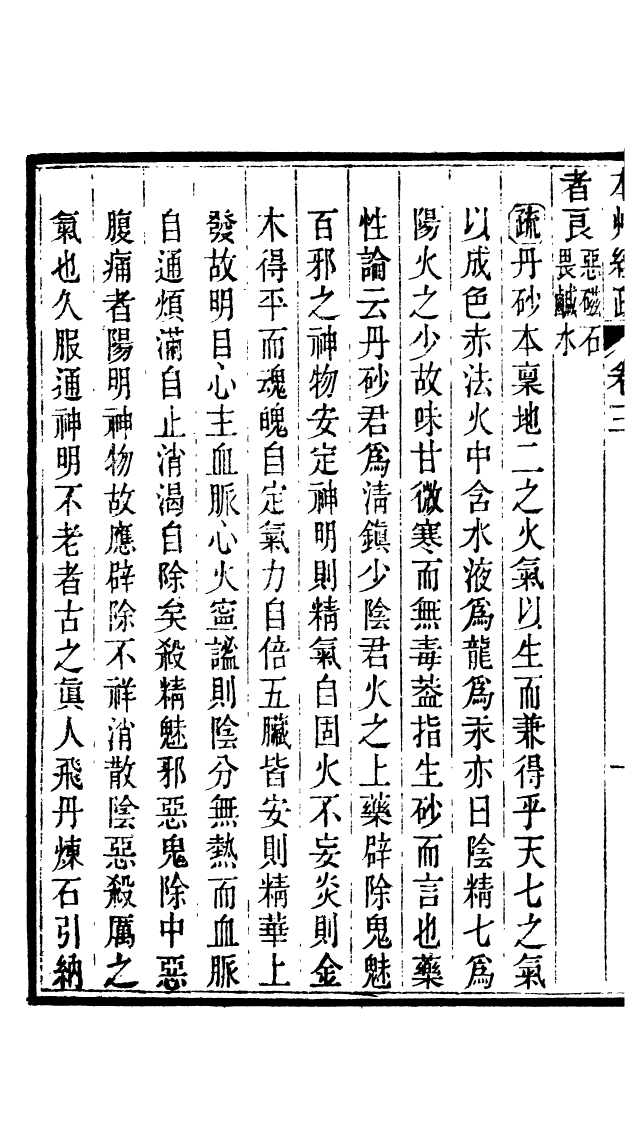 者良惡磁石畏鹹水
疏丹砂本稟地二之火氣以生而兼得乎天七之氣
以成色赤法火中含水液爲龍爲汞亦曰陰精七爲
陽火之少故味甘微寒而無毒葢指生砂而言也藥
性論云丹砂君爲淸鎭少陰君火之上藥辟除鬼魅
百邪之神物安定神明則精氣自固火不妄炎則金
木得平而魂魄自定氣力自倍五臟皆安則精華上
發故明目心主血脈心火寧謐則陰分無熱而血脈
自通煩滿自止消渴自除矣殺精魅邪惡鬼除中惡
腹痛者陽明神物故應辟除不祥消散陰惡殺厲之
氣也久服通神明不老者古之眞人飛丹煉石引納